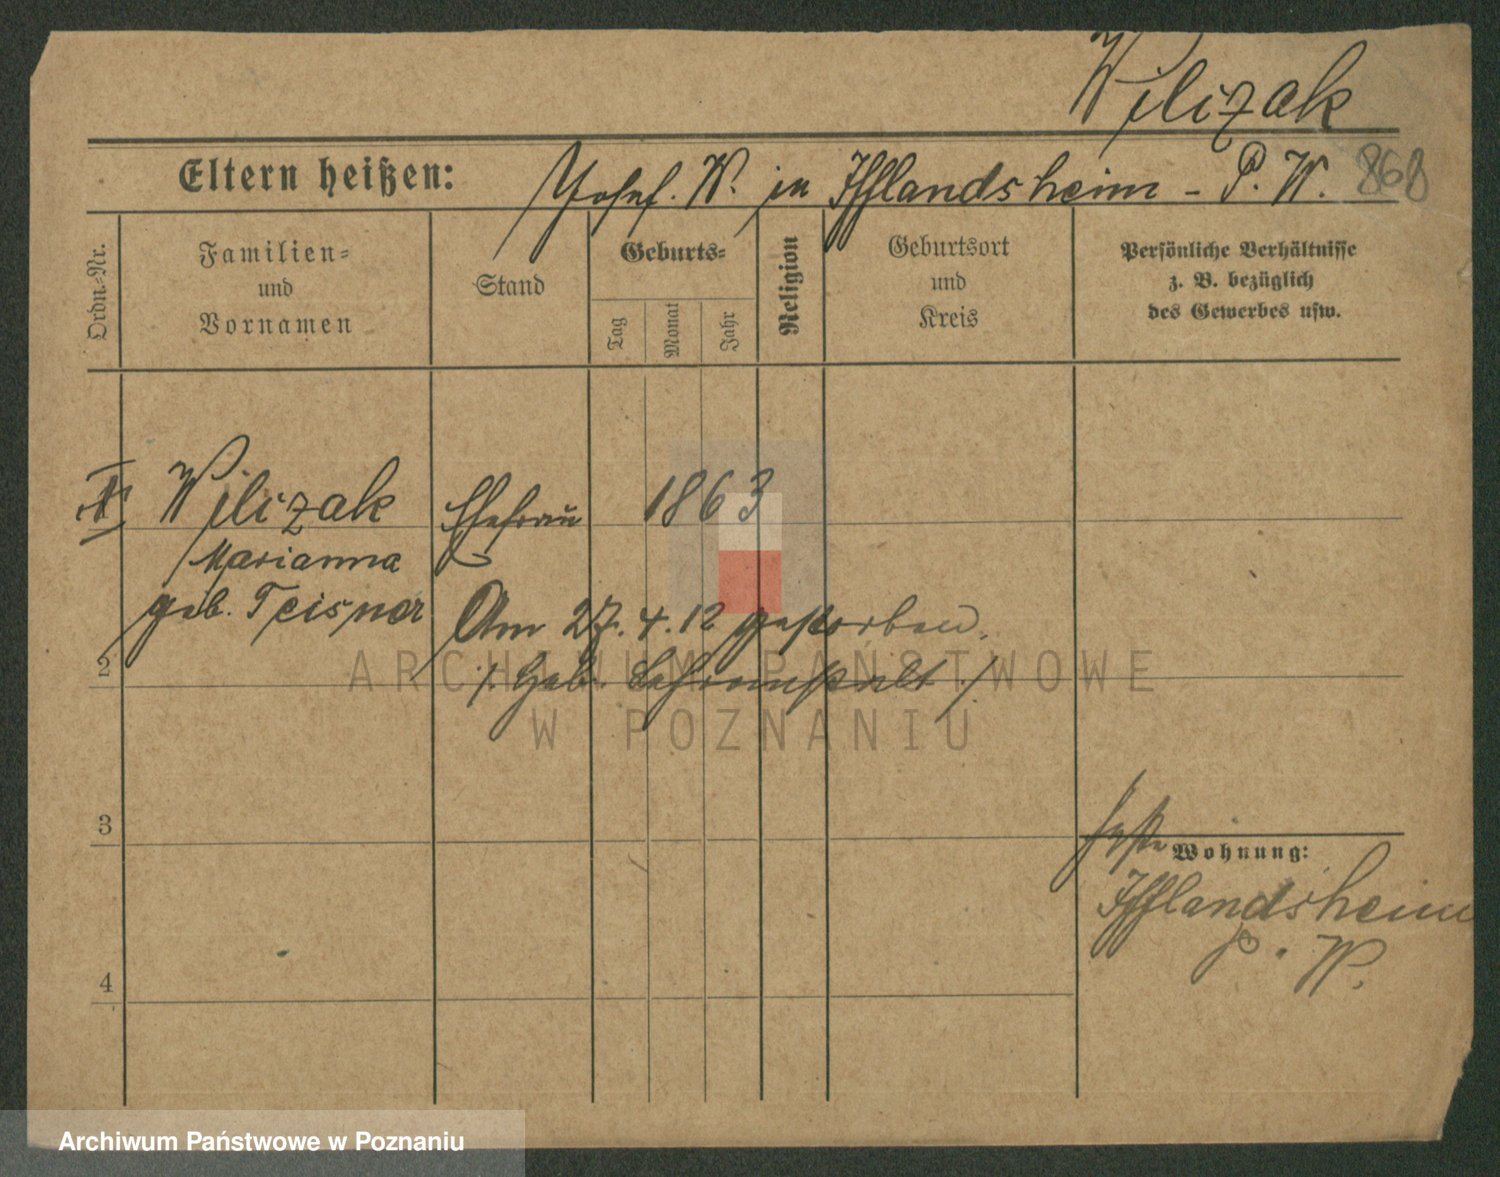 Wilizak
Eltern heißen: Josef. W. in Ifflandsheim - P. W. 868
Ordn.-Nr.
Familien-
und
Vornamen
Stand
Geburts-
Tag
Monat
Jahr
Religion
Geburtsort
und
Kreis
Persönliche Verhältnisse
z. B. bezüglich
des Gewerbes usw.
Wilizak Ehefrau 1863
Marianna
geb. Teisner
Am 27. 4. 12 gestorben.
2
/. Geb. /
ARCHIWUM PAŃSTWOWE
W POZNANIU
3
Wohnung:
Ifflandsheim
P. W.
4
Archiwum Państwowe w Poznaniu